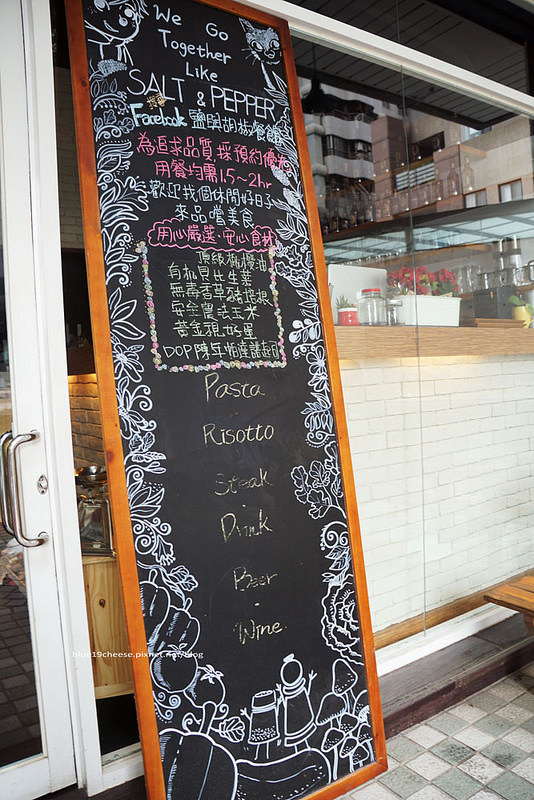 We Go
Together
Like
SALT & PEPPER
Facebook 鹽與胡椒餐館
為追求品質 採預約優先
用餐均需1.5~2hr
歡迎找個休閒好日子
來品嚐美食
用心嚴選·安心食材
頂級橄欖油
有機貝比生菜
無毒香草豬培根
安全農法玉米
黃金視力蛋
DOP陳年帕達諾起司
Pasta
Risotto
Steak
Drink
Beer
Wine
blue19cheese.pixnet.net/blog